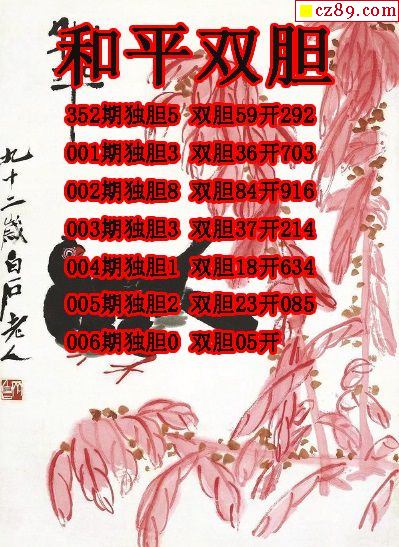 cz89.com
和平双胆
352期独胆5 双胆59开292
001期独胆3 双胆36开703
002期独胆8 双胆84开916
003期独胆3 双胆37开214
004期独胆1 双胆18开634
005期独胆2 双胆23开085
006期独胆0 双胆05开
九十二岁白石老人